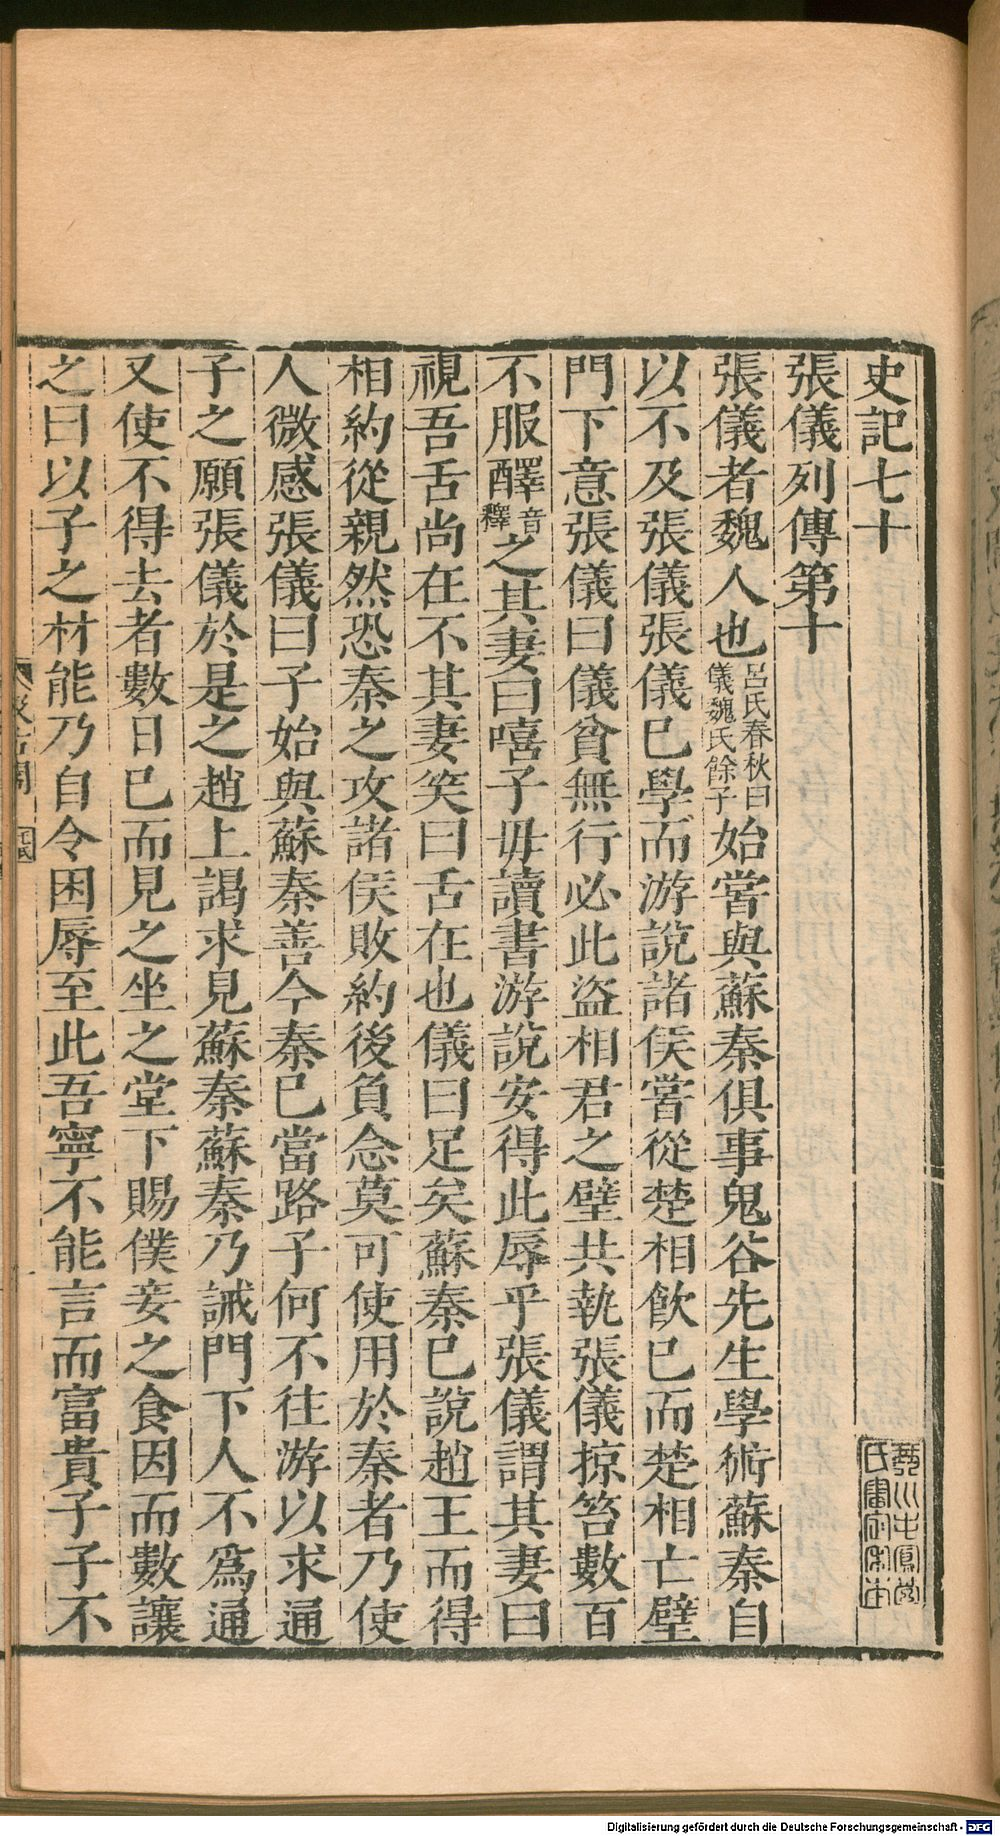 史記七十
張儀列傳第十
張儀者魏人也呂氏春秋曰儀魏氏餘子始嘗與蘇秦俱事鬼谷先生學術蘇秦自
以不及張儀張儀已學而游說諸侯嘗從楚相飲已而楚相亡璧
門下意張儀曰儀貧無行必此盜相君之璧共執張儀掠笞數百
不服醳音釋之其妻曰嘻子毋讀書游說安得此辱乎張儀謂其妻曰
視吾舌尚在不其妻笑曰舌在也儀曰足矣蘇秦已說趙王而得
相約從親然恐秦之攻諸侯敗約後負念莫可使用於秦者乃使
人微感張儀曰子始與蘇秦善今秦已當路子何不往游以求通
子之願張儀於是之趙上謁求見蘇秦蘇秦乃誡門下人不爲通
又使不得去者數日已而見之坐之堂下賜僕妾之食因而數讓
之曰以子之材能乃自令困辱至此吾寧不能言而富貴子子不
Digitalisierung gefördert durch die Deutsche Forschungsgemeinschaft - DFG